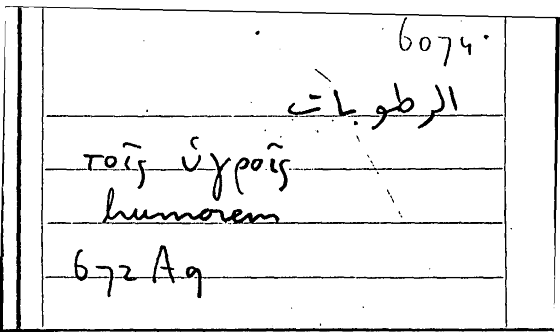 6074
الرطوبات
τοῖς ὑγροῖς
humorem
672 A9